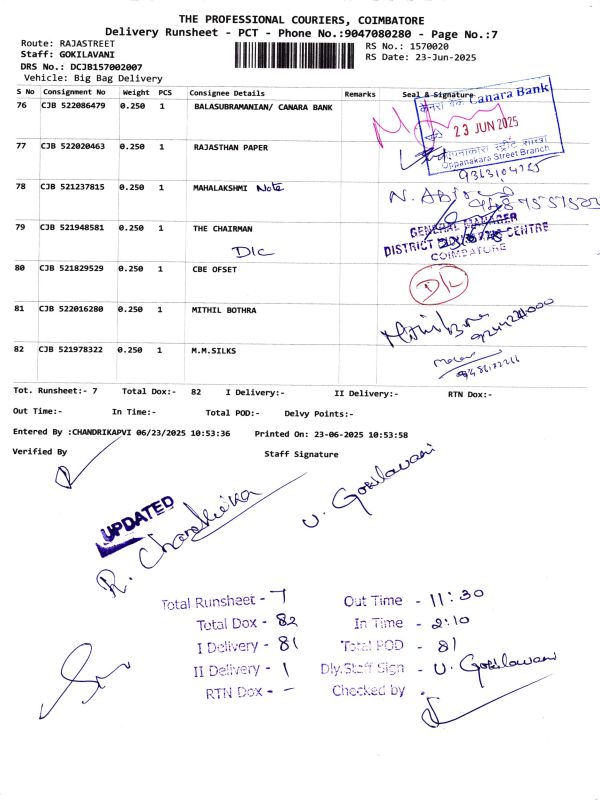 THE PROFESSIONAL COURIERS, COIMBATORE
Delivery Runsheet - PCT - Phone No.:9047080280 - Page No.:7
Route: RAJASTREET
RS No.: 1570020
Staff: GOKILAVANI
RS Date: 23-Jun-2025
DRS No.: DCJB157002007
Vehicle: Big Bag Delivery
S No Consignment No Weight PCS Consignee Details Remarks Seal & Signature
76 CJB 522086479 0.250 1 BALASUBRAMANIAN/ CANARA BANK
केनरा बैंक Canara Bank
23 JUN 2025
Oppanakara Street Branch
77 CJB 522020463 0.250 1 RAJASTHAN PAPER
9363104725
78 CJB 521237815 0.250 1 MAHALAKSHMI Note
79 CJB 521948581 0.250 1 THE CHAIRMAN
D/c
GENERAL MANAGER
DISTRICT INDUSTRIES CENTRE
COIMBATORE
80 CJB 521829529 0.250 1 CBE OFSET
D/L
81 CJB 522016280 0.250 1 MITHIL BOTHRA
82 CJB 521978322 0.250 1 M.M.SILKS
Tot. Runsheet:- 7 Total Dox:- 82 I Delivery:- II Delivery:- RTN Dox:-
Out Time:- In Time:- Total POD:- Delvy Points:-
Entered By :CHANDRIKAPVI 06/23/2025 10:53:36 Printed On: 23-06-2025 10:53:58
Verified By Staff Signature
UPDATED
R. Chandrika
U. Gokilavani
Total Runsheet - 7 Out Time - 11:30
Total Dox - 82 In Time - 2:10
I Delivery - 81 Total POD - 81
II Delivery - 1 Dly.Staff Sign - U. Gokilavani
RTN Dox - - Checked by -